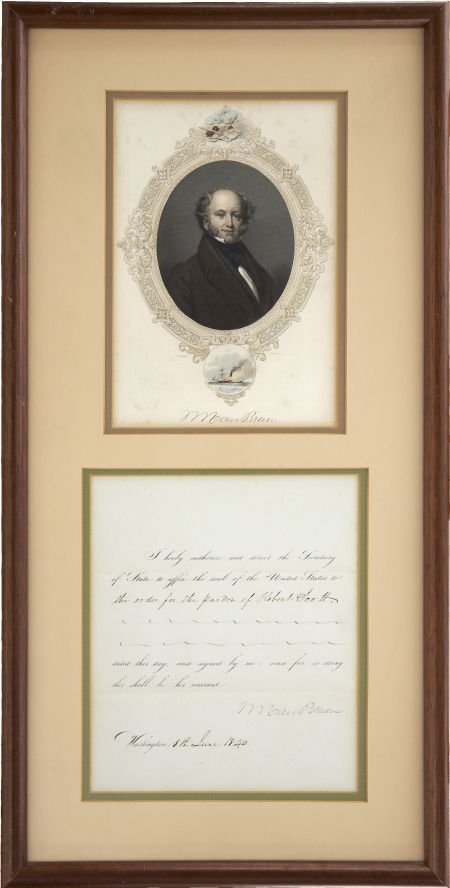 M Van Buren
I hereby authorise and direct the Secretary
of State to affix the seal of the United States to
the order for the pardon of Robert Scott.
dated this day, and signed by me: and for so doing
this shall be his warrant.
M Van Buren
Washington, 8th June 1840